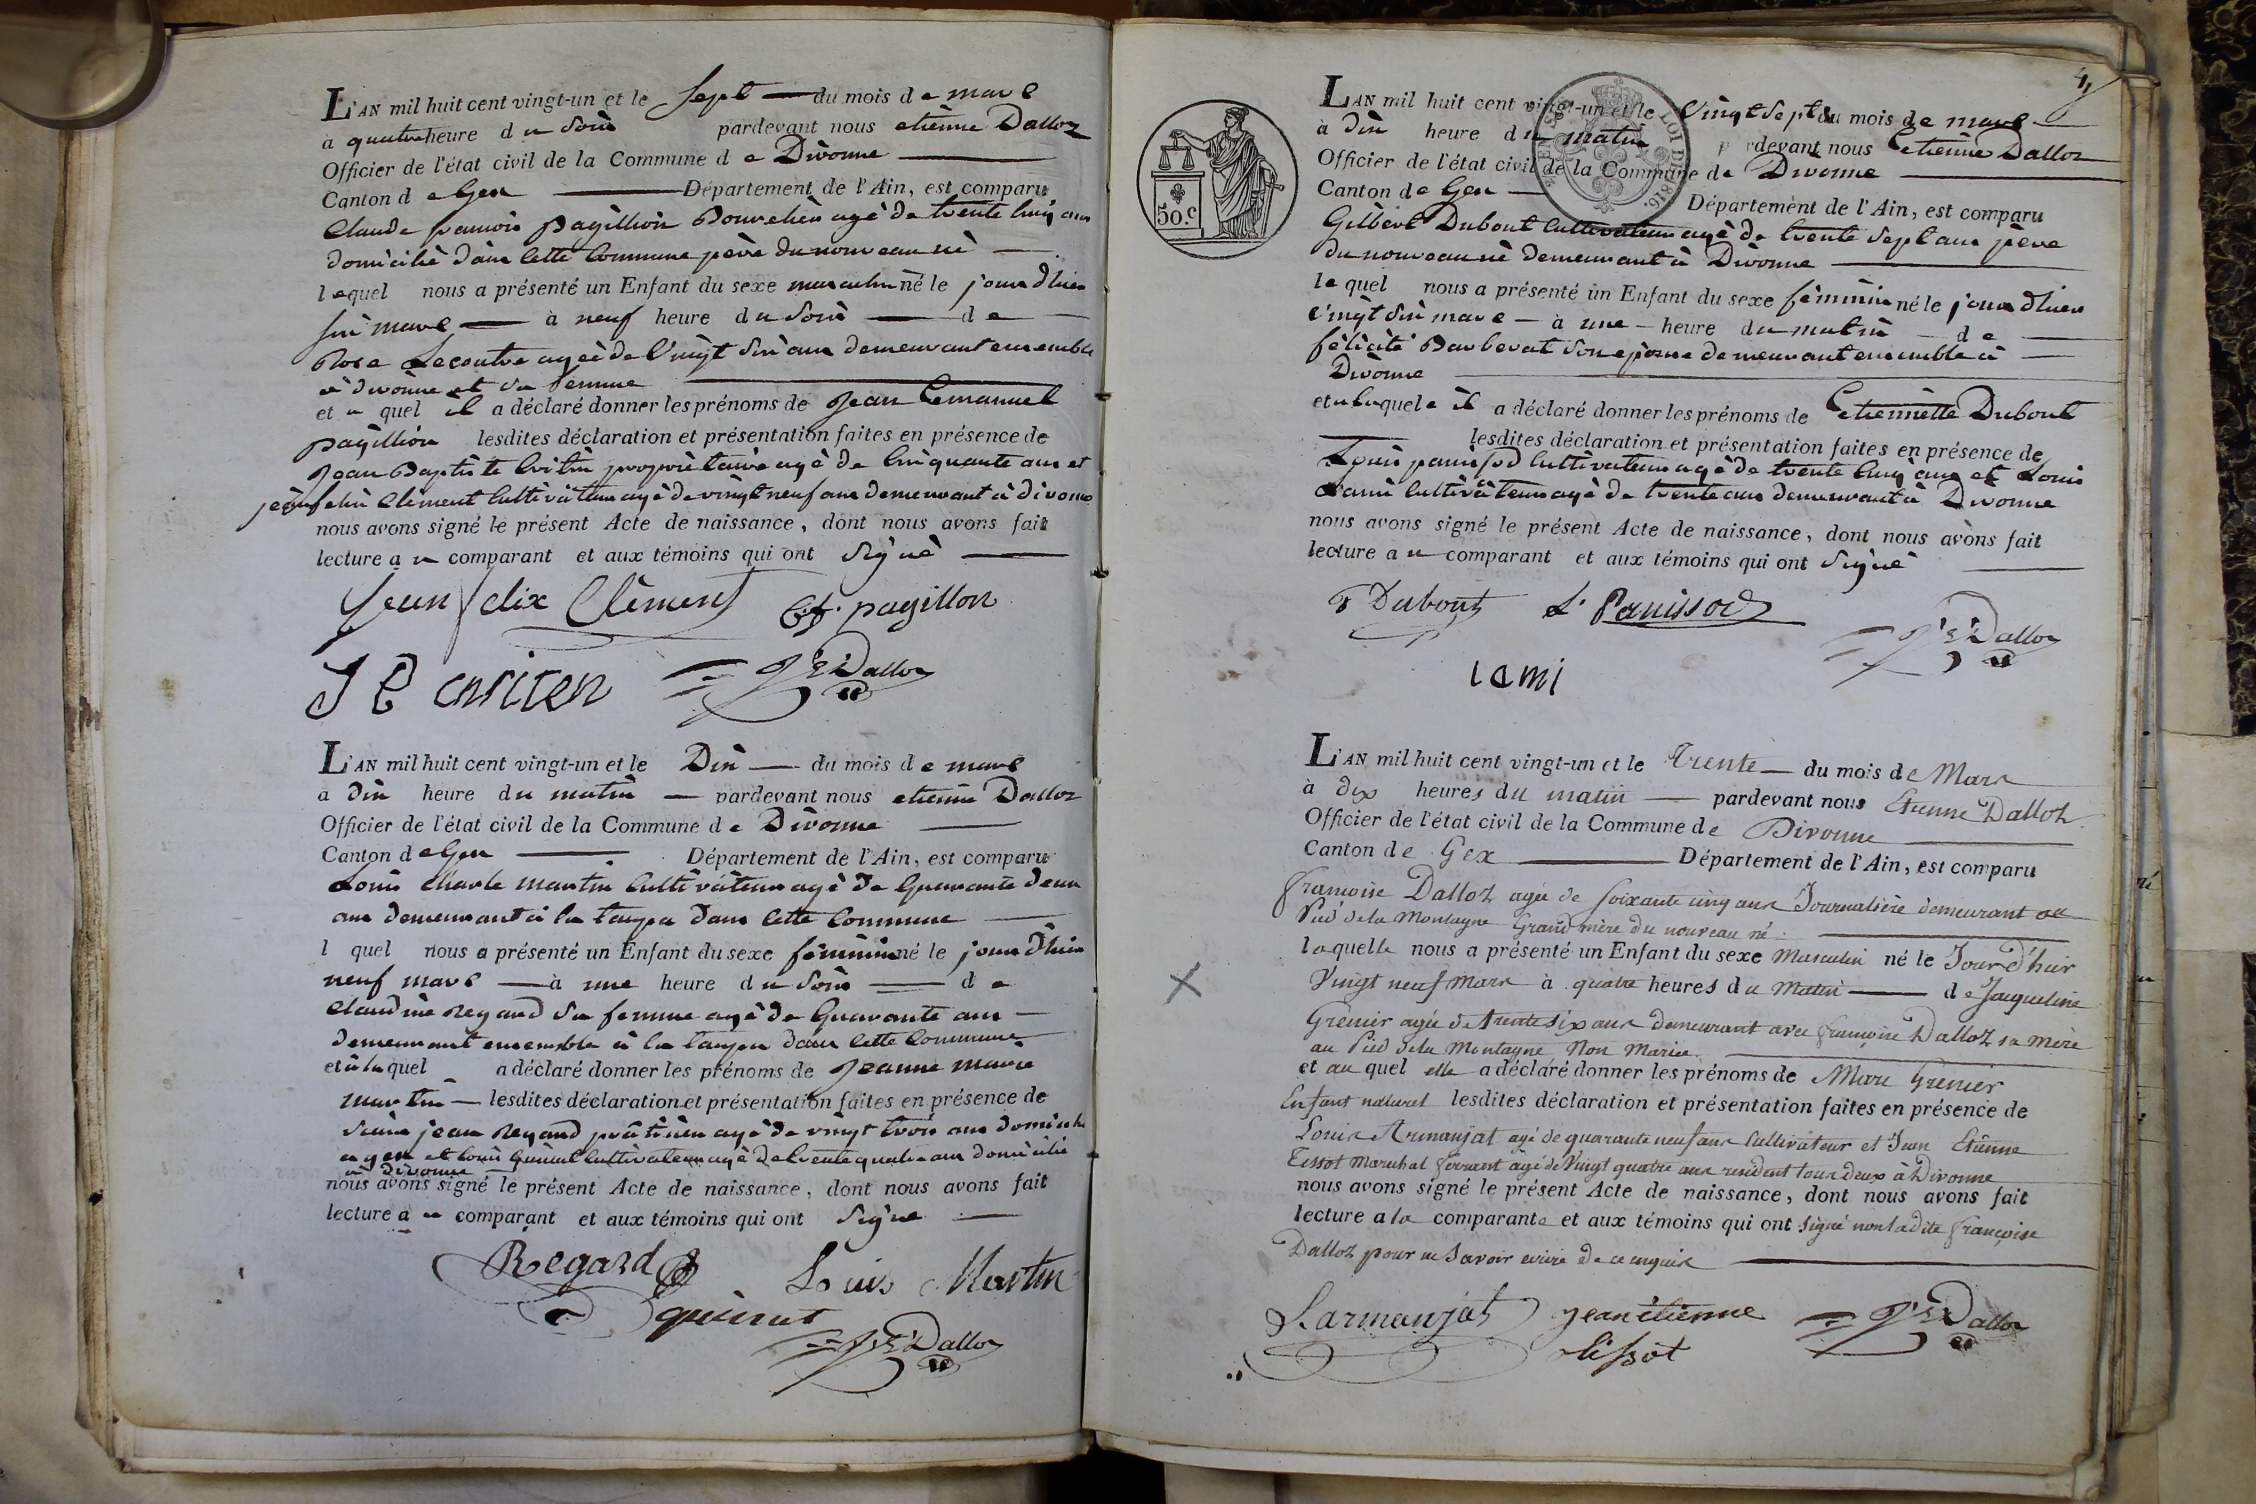 L'AN mil huit cent vingt-un et le sept du mois de mars
à quatre heure du soir pardevant nous etienne Dalloz
Officier de l'état civil de la Commune de Divonne
Canton de Gex Département de l'Ain, est comparu
Claude françois pagillion agé de trente ans
domicilié dans cette Commune père du nouveau né
lequel nous a présenté un Enfant du sexe masculin né le jour d'hier
six mars à neuf heure du soir de
Rose Lecoultre agée de vingt six ans demeurant ensemble
à divonne et sa femme
et a quel il a déclaré donner les prénoms de jean Emanuel
pagillion lesdites déclaration et présentation faites en présence de
jean Baptiste propriétaire agé de Cinquante ans et
jean felix Clément Cultivateur agé de vingt neuf ans demeurant à divonne
nous avons signé le présent Acte de naissance, dont nous avons fait
lecture au comparant et aux témoins qui ont signé
Jean felix Clément C.f. pagillon
J B J E Dalloz
L'AN mil huit cent vingt-un et le Dix du mois de mars
à dix heure du matin pardevant nous etienne Dalloz
Officier de l'état civil de la Commune de Divonne
Canton de Gex Département de l'Ain, est comparu
Louis Charle martin Cultivateur agé de Quarante deux
ans demeurant à la dans cette Commune
l quel nous a présenté un Enfant du sexe féminin né le jour d'hier
neuf mars à une heure du soir de
Claudine Regard sa femme agé de Quarante ans
demeurant ensemble à la dans cette Commune
et à la quel a déclaré donner les prénoms de Jeanne marie
martin lesdites déclaration et présentation faites en présence de
jean Regard agé de vingt trois ans domicilié
a gex et Louis Cultivateur agé de trente quatre ans domicilié
à divonne
nous avons signé le présent Acte de naissance, dont nous avons fait
lecture au comparant et aux témoins qui ont signé
Regard Louis Martin
J E Dalloz
4
L'AN mil huit cent vingt-un et le vingt sept du mois de mars
à dix heure du matin pardevant nous Etienne Dalloz
Officier de l'état civil de la Commune de Divonne
Canton de Gex Département de l'Ain, est comparu
50.c
LOI DE 1816.
Gilbert Dubout Cultivateur agé de trente sept ans père
du nouveau né demeurant à Divonne
lequel nous a présenté un Enfant du sexe féminin né le jour d'hier
vingt six mars à une heure du matin de
félicité Barberat son épouse demeurant ensemble à
Divonne
et a laquele il a déclaré donner les prénoms de Etiennette Dubout
lesdites déclaration et présentation faites en présence de
Louis panissod Cultivateur agé de trente Cinq ans et Louis
Cultivateur agé de trente ans demeurant à Divonne
nous avons signé le présent Acte de naissance, dont nous avons fait
lecture au comparant et aux témoins qui ont signé
Dubout L. Panissod
J E Dalloz
lami
L'AN mil huit cent vingt-un et le Trente du mois de Mars
à dix heures du matin pardevant nous Etienne Dalloz
Officier de l'état civil de la Commune de Divonne
Canton de Gex Département de l'Ain, est comparu
françoise Dalloz agée de soixante cinq ans Journalière demeurant au
Pied de la Montagne Grand mère du nouveau né
laquelle nous a présenté un Enfant du sexe Masculin né le Jour d'hier
Vingt neuf Mars à quatre heures du Matin de Jaqueline
Grenier agée de trente six ans demeurant avec françoise Dalloz sa mère
au Pied de la Montagne Non Mariée
et au quel elle a déclaré donner les prénoms de Marc Grenier
Enfant naturel lesdites déclaration et présentation faites en présence de
Louis Armanjat agé de quarante neuf ans Cultivateur et Jean Etienne
Tissot Marechal ferrant agé de Vingt quatre ans residant tous deux à Divonne
nous avons signé le présent Acte de naissance, dont nous avons fait
lecture a la comparante et aux témoins qui ont signé non ladite françoise
Dalloz pour ne savoir ecrire de ce enquise
Larmanjat jean étienne J E Dalloz
tissot